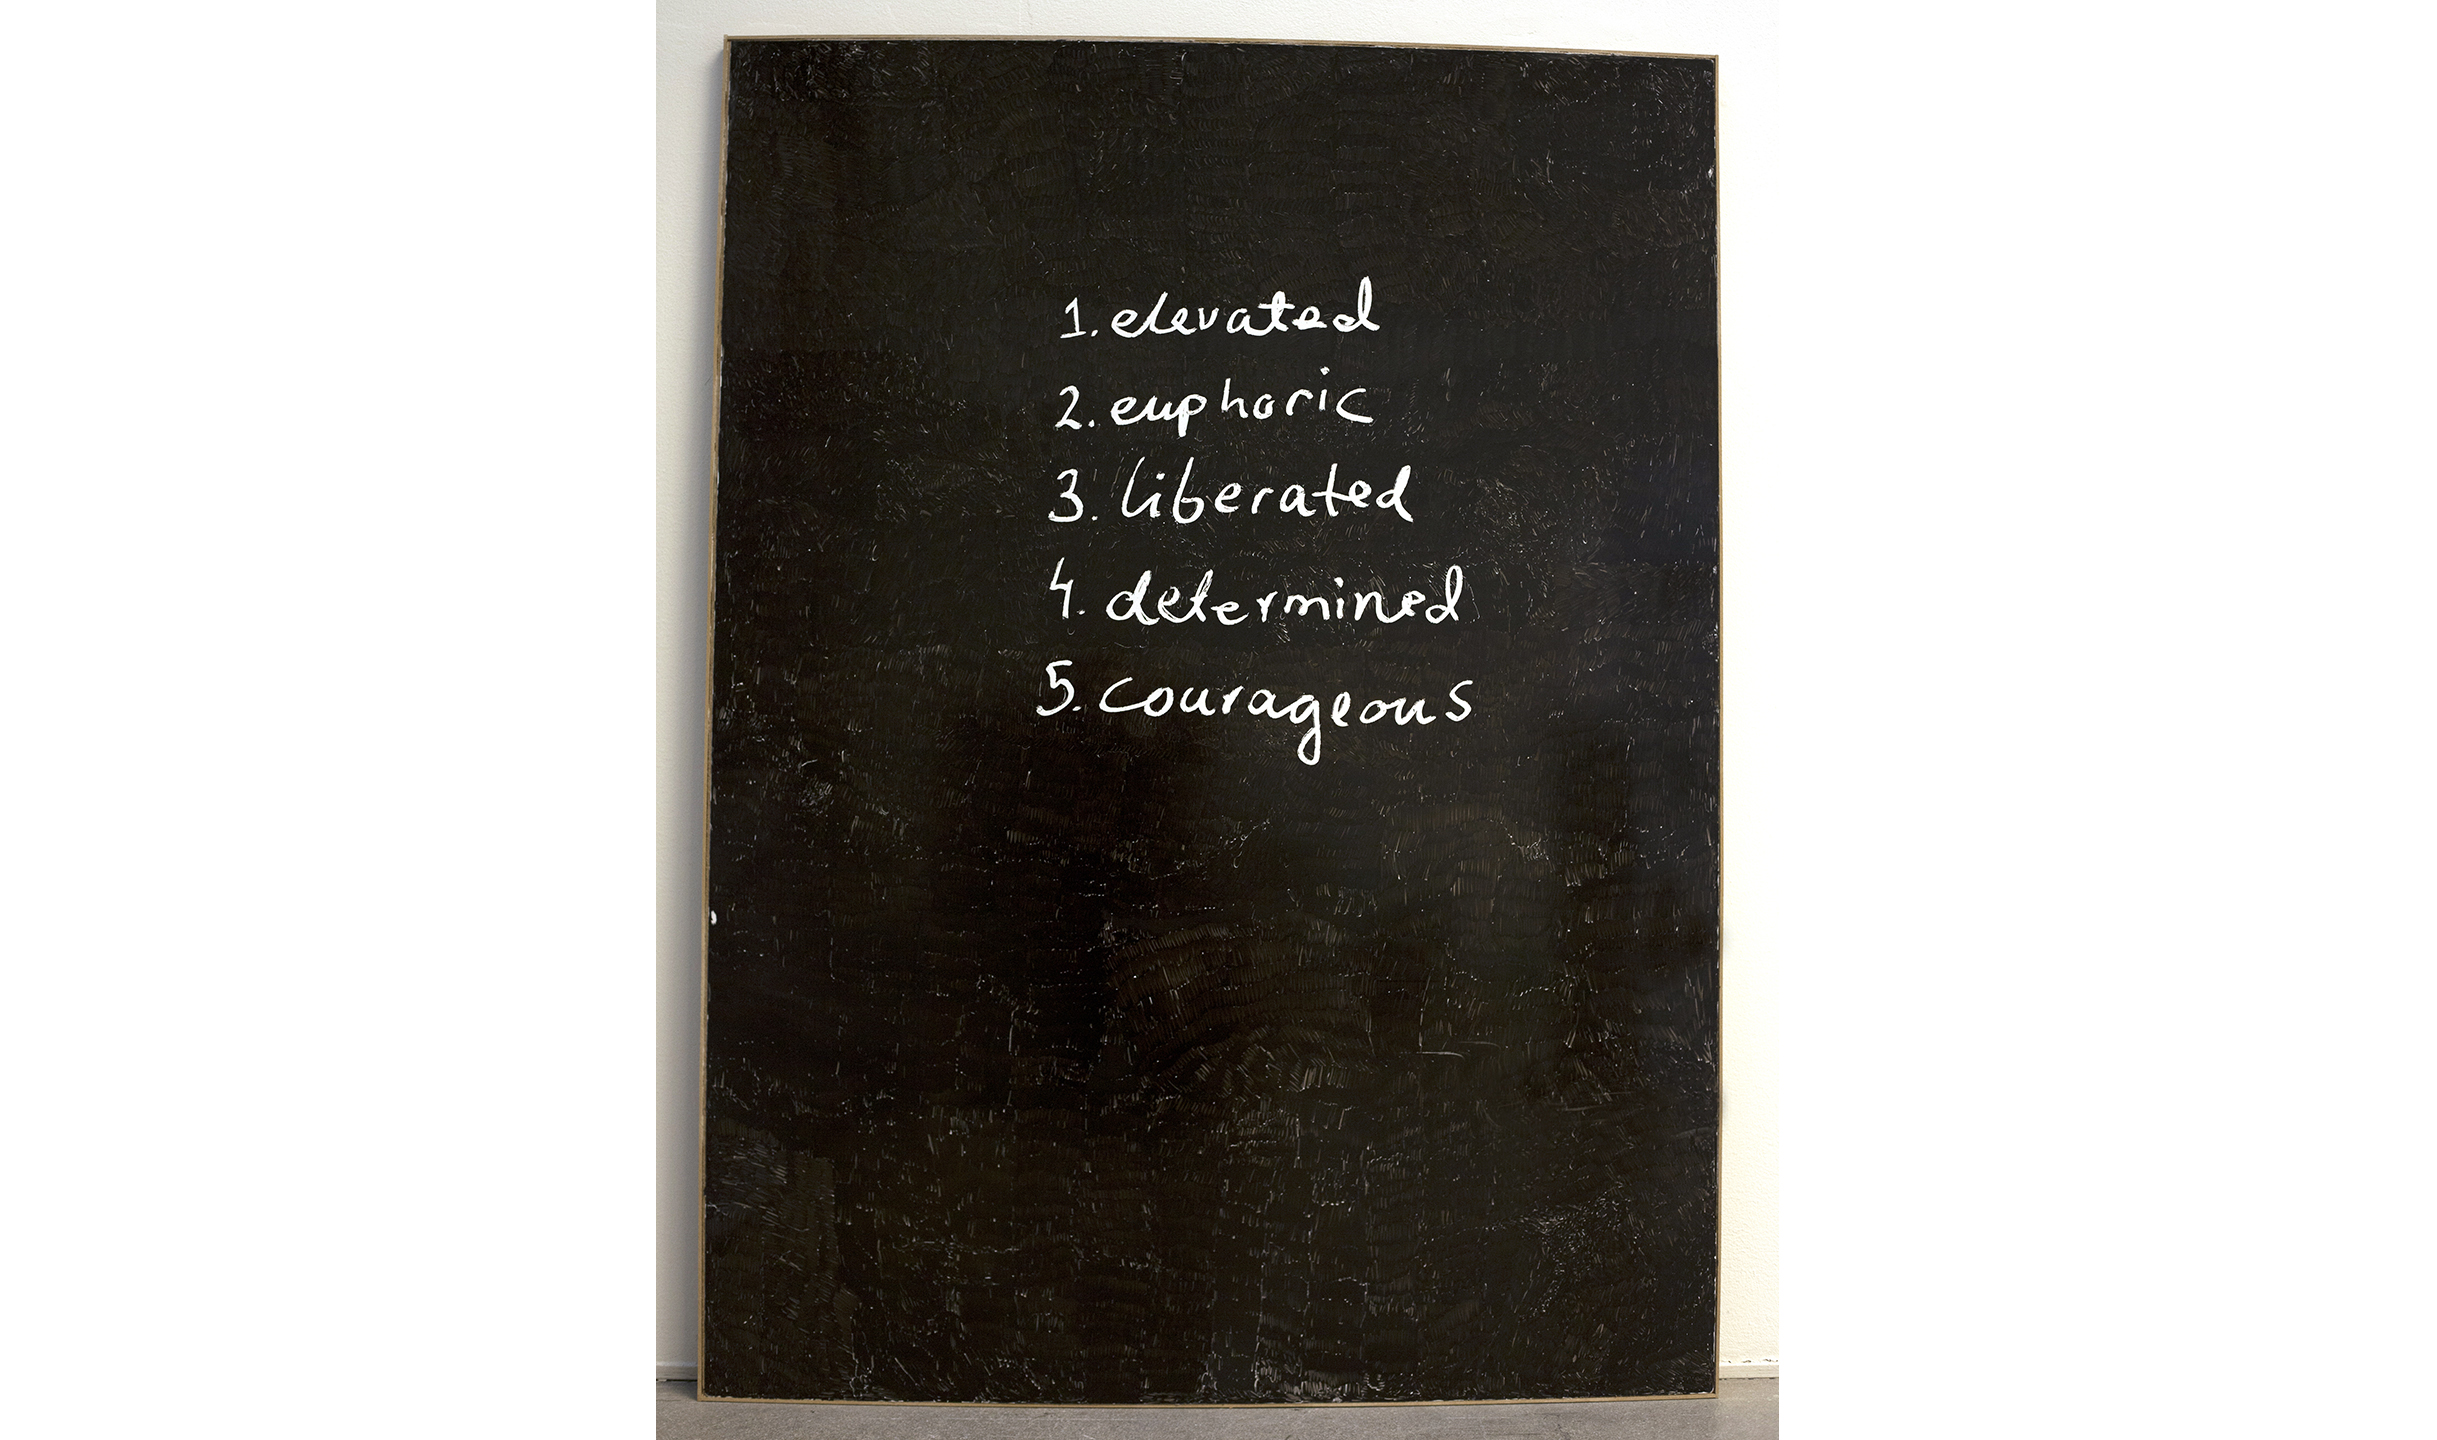 1. elevated
2. euphoric
3. liberated
4. determined
5. courageous